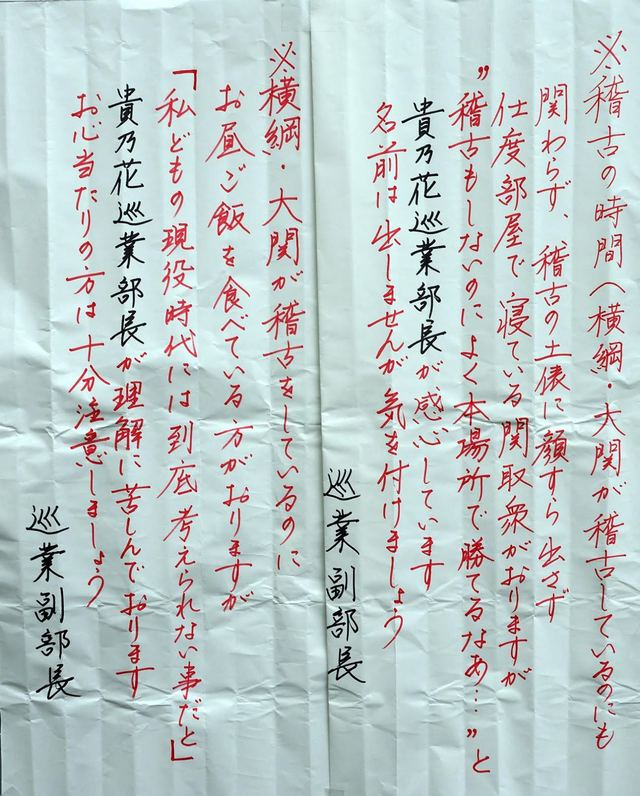 ※稽古の時間へ横綱・大関が稽古しているのにも
関わらず、稽古の土俵に顔すら出さず
仕度部屋で寝ている関取衆がおりますが
〝稽古もしないのによく本場所で勝てるなあ…〟と
貴乃花巡業部長が感心しています
名前は出しませんが気を付けましょう
巡業副部長
※横綱・大関が稽古をしているのに
お昼ご飯を食べている方がおりますが
「私どもの現役時代には到底考えられない事だと」
貴乃花巡業部長が理解に苦しんでおります
お心当たりの方は十分注意しましょう
巡業副部長